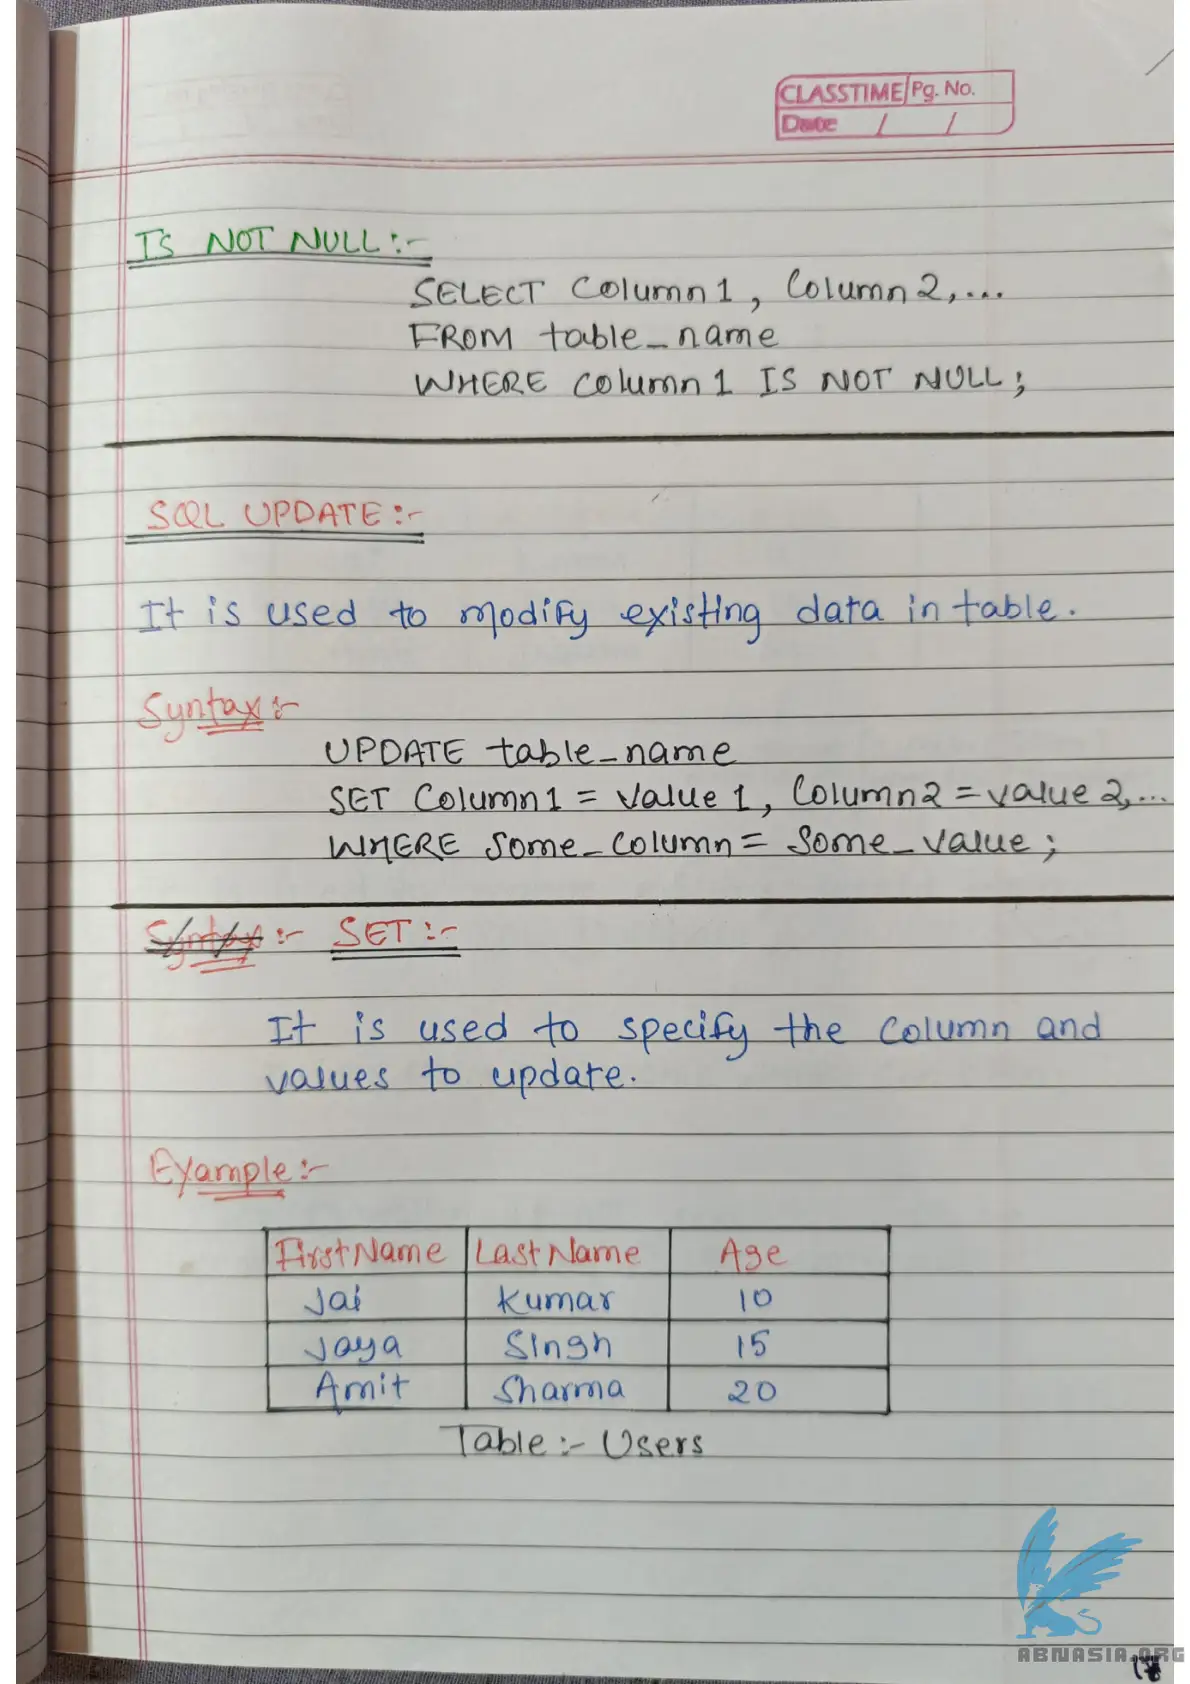 CLASSTIME Pg. No.
Date / /
IS NOT NULL :-
SELECT Column1, Column2,...
FROM table_name
WHERE Column1 IS NOT NULL;
SQL UPDATE :-
It is used to modify existing data in table.
Syntax :-
UPDATE table_name
SET Column1 = Value1, Column2 = value2,...
WHERE Some_Column = Some_Value;
Syntax :- SET :-
It is used to specify the Column and
values to update.
Example :-
FirstName LastName Age
Jai Kumar 10
Jaya Singh 15
Amit Sharma 20
Table :- Users
ABNASIA.ORG